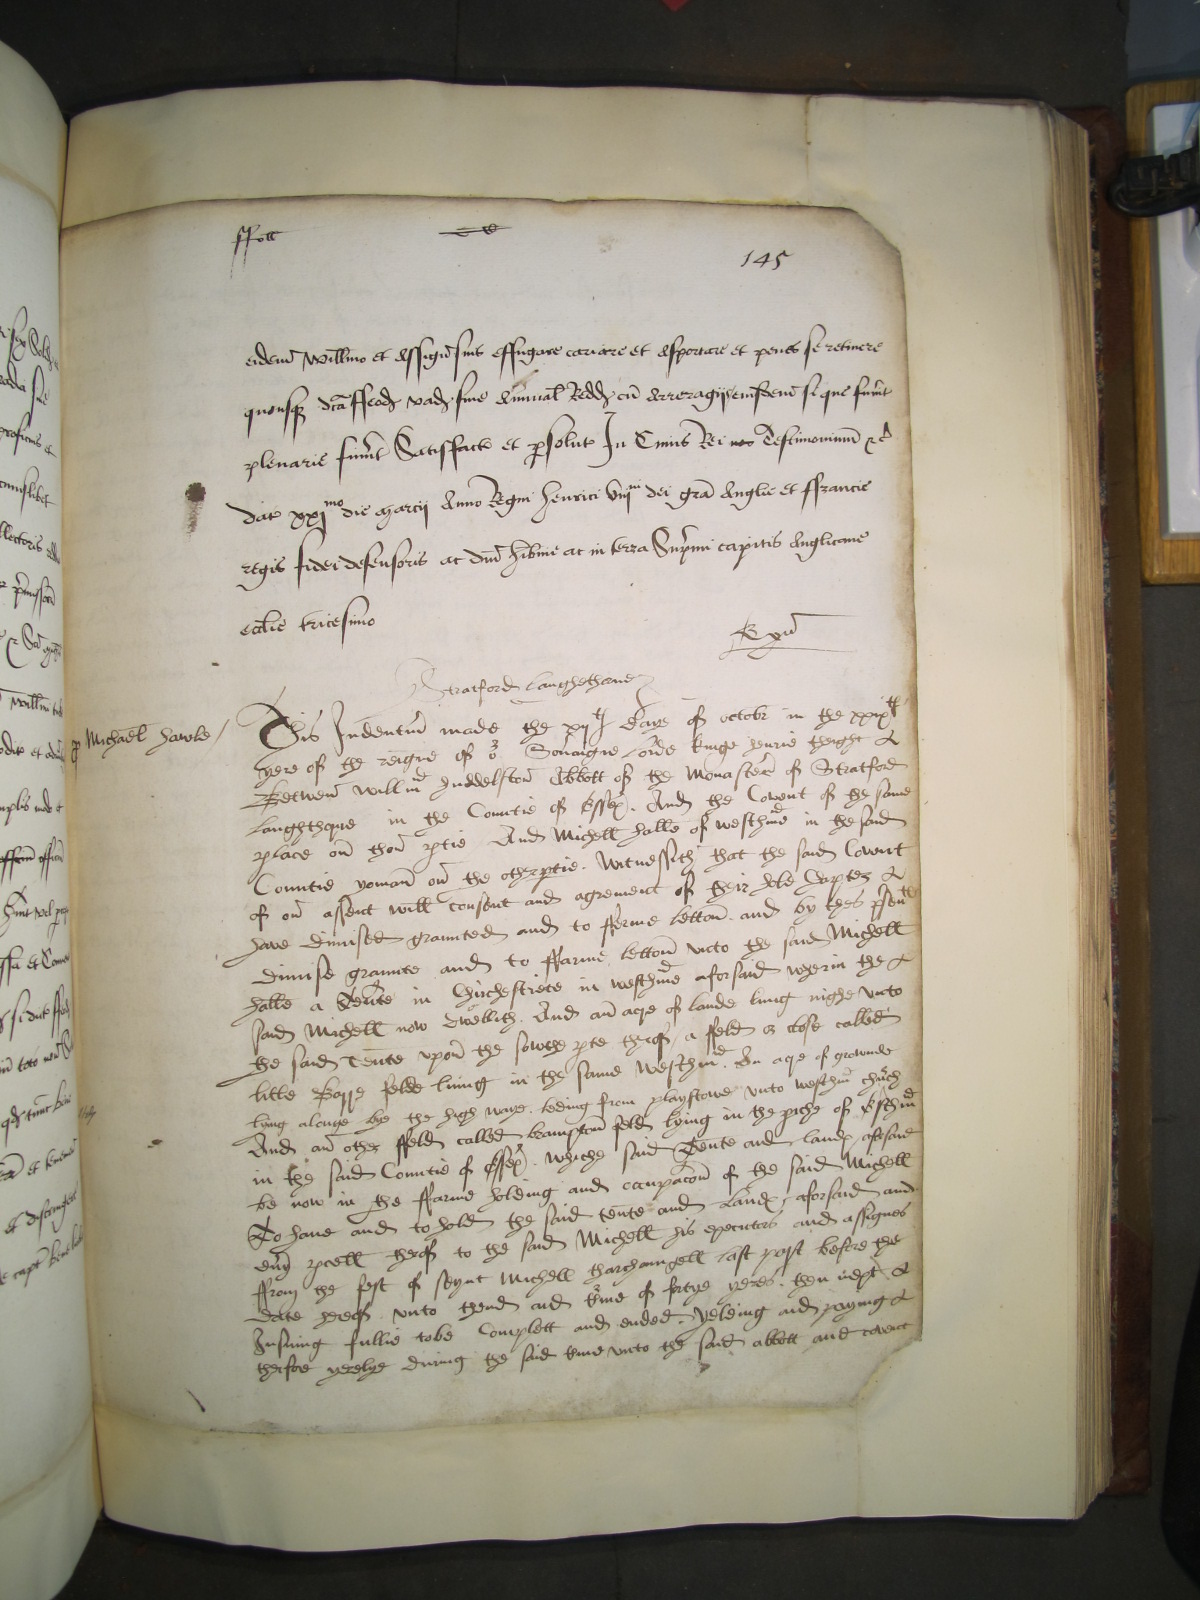 ffoll
145
eidem Willmo et assign suis effugare cariare et asportare et penes se retinere
quousq dca ffeod vad sine annual Redd cu arreragijs eiusdem si que fuint
plenarie fuint Satisfact et psolut In Cuius Rei Testimonium &c
dat xxjmo die Marcij Anno Regni henrici viijui dei gra Anglie et ffrancie
regis fidei defensoris ac dni hibnie ac in terra Supmi capitis Anglicane
ecclie tricesimo
Stratford Langhthorne
Michaell Hawle
This Indenture made the xijth daye of octobr in the xxixth
yere of the reigne of or Soueraigne lorde kinge henrie theight &
Betwen Willm huddelston Abbott of the Monastere of Stratford
Langhthorne in the Countie of Essex. And the Covent of the same
place on thon ptie And Michell Halle of westhm in the said
Countie yoman on the other ptie. Witnessith that the said Covent
of on assent will consent and agrement of their hole Chapter &
have dimised graunted and to fferme letton. and by thes psent
dimise graunte and to ffarme letton vnto the said Michell
halle a Tente in Chirchestrete in westhm aforsaid wherin the &
said Michell now dwellith. And an acre of lande liing nighe vnto
the said Tente vpon the sowthe pte therof / a ffeld or close called
little Boyse felde liing in the same westhm. An acre of grounde
lying alonge by the high waye leding from playstowe vnto westhm chirch
And an other ffeld called felde lying in the pishe of Esthm
in the said Countie of Essex. whiche said Tente and land aforsaid
be now in the ffarme holding and occupacon of the said Michell
To haue and to hold the said tente and Land aforsaid and
euy pcell therof to the said Michell his executors and assignes
ffrom the fest of seynt Michell tharchaungell last past before the
date herof vnto thend and tme of fortye yeres then next &
Insuing fullie tobe Complett and ended. Yelding and paying &
therfore yerelye during the said tme vnto the said abbott and covent